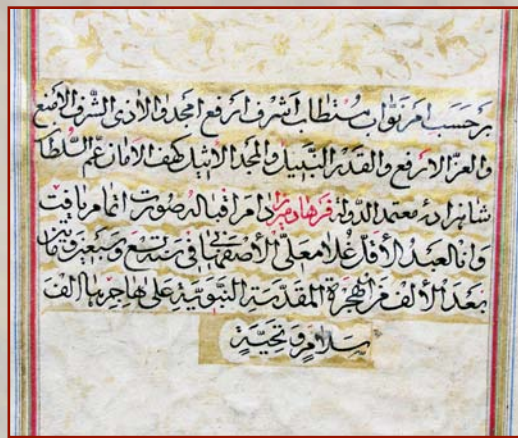 بر حسب امر نواب مستطاب اشرف ارفع امجد والا ذی الشرف الامنع
والعز الارفع والقدر النبیل والمجد الاثیل کهف الامان عم السلطان
شاهزاده معتمد الدوله فرهاد میرزا دام اقباله صورت اتمام یافت
وانا العبد الاقل غلامعلی الأصفهانی فی سنة تسع وسبعین ومأتین
بعد الألف من الهجرة المقدسة النبویة علی هاجرها الف
سلام وتحیة